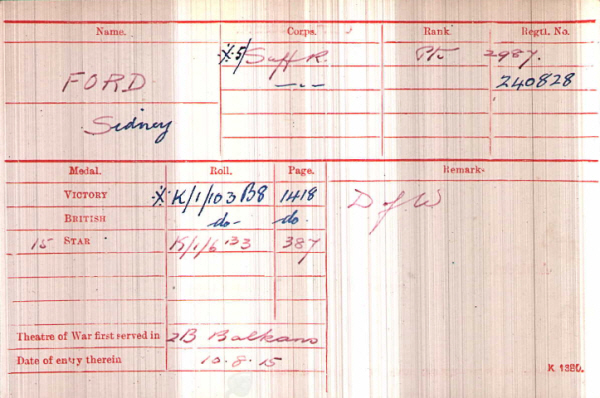 Name. Corps. Rank. Regtl. No.
FORD 5/Suff R. Pte 2987.
Sidney —"— 240828
Medal. Roll. Page. Remarks
VICTORY K/1/103 B8 1418 D of W
BRITISH do- do.
15 STAR K/1/6 33 387
Theatre of War first served in 2B Balkans
Date of entry therein 10.8.15
K 1380.